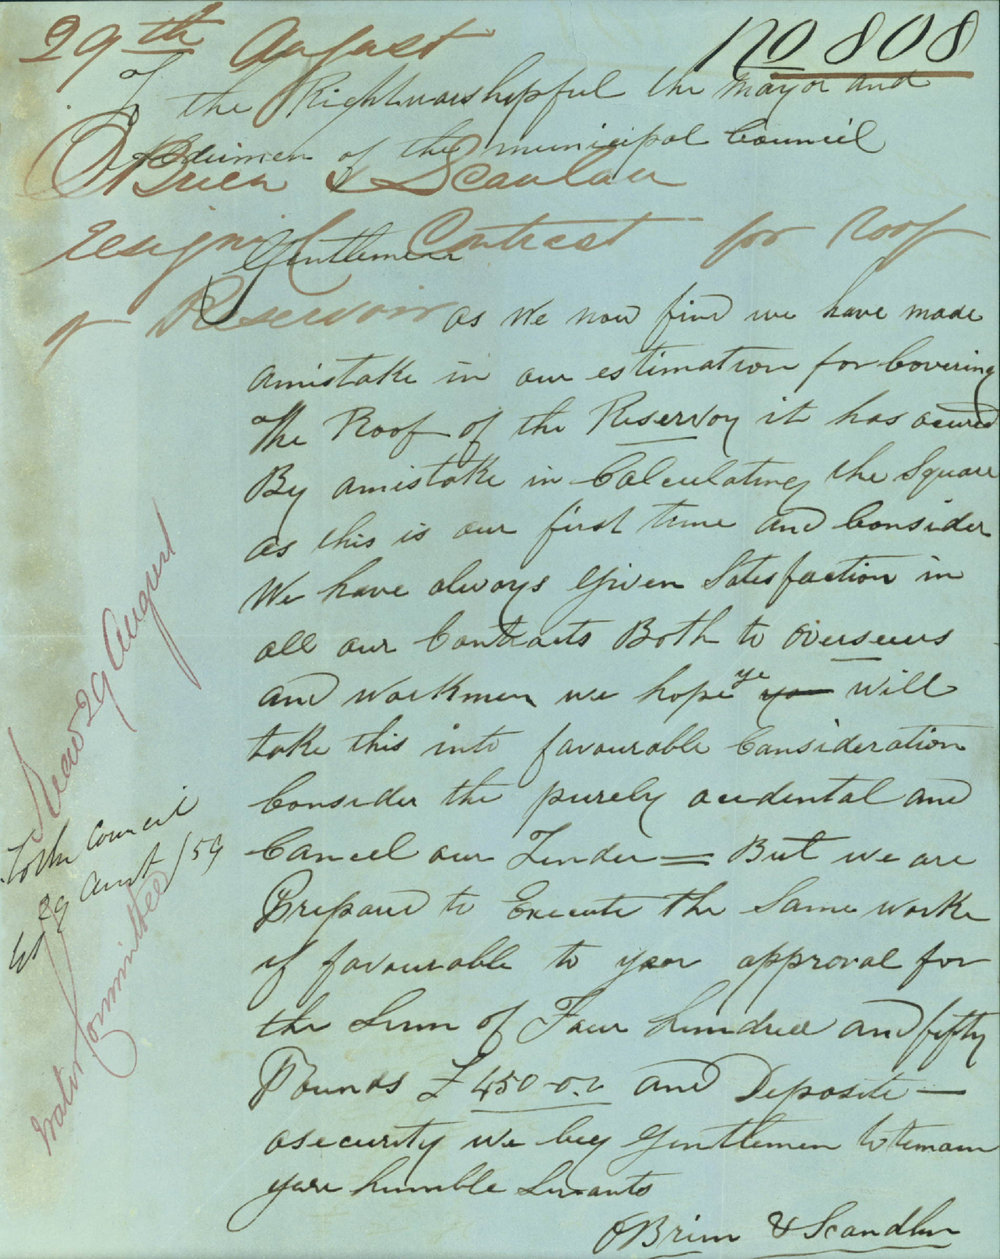 29th August
No 808
To the Rightworshipful the Mayor and
Aldermen of the municipal Council
OBrien & Scanlan
resigning Contract for Roof
of Reservoir
Gentlemen
as We now find we have made
amistake in our estimation for Covering
the Roof of the Reservoy it has accured
By amistake in Calculating the Square
as this is our first time and Consider
We have always Given Satesfaction in
all our Contracts Both to overseers
and workmen we hope ye will
take this into favourable Consideration
Consider the purely accidental and
Cancel our Tender = But we are
Prepared to Execute the Same worke
if favourable to your approval for
the Sum of Four hundred and fifty
Pounds £450-0.0 and Deposite —
asecurity we beg Gentlemen to remain
youre humble Servants
OBrien & Scandlan
29 August
To the Council
29 Augt /59
Water Committee